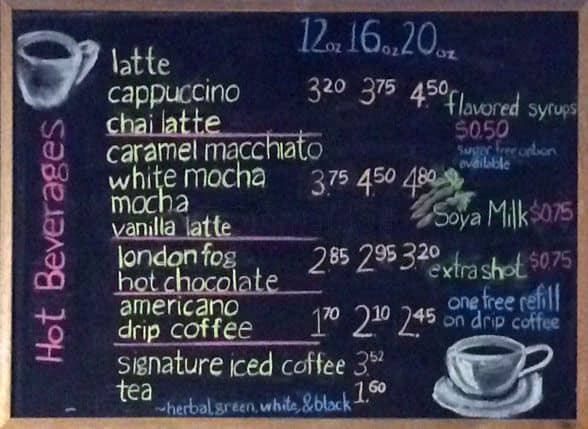 Hot Beverages
12oz 16oz 20oz
latte
cappuccino 3.20 3.75 4.50
chai latte
caramel macchiato
white mocha 3.75 4.50 4.80
mocha
vanilla latte
london fog 2.85 2.95 3.20
hot chocolate
americano
drip coffee 1.70 2.10 2.45
signature iced coffee 3.52
tea 1.60
~herbal, green, white, & black
flavored syrups
$0.50
sugar free option
availible
Soya Milk $0.75
extra shot $0.75
one free refill
on drip coffee